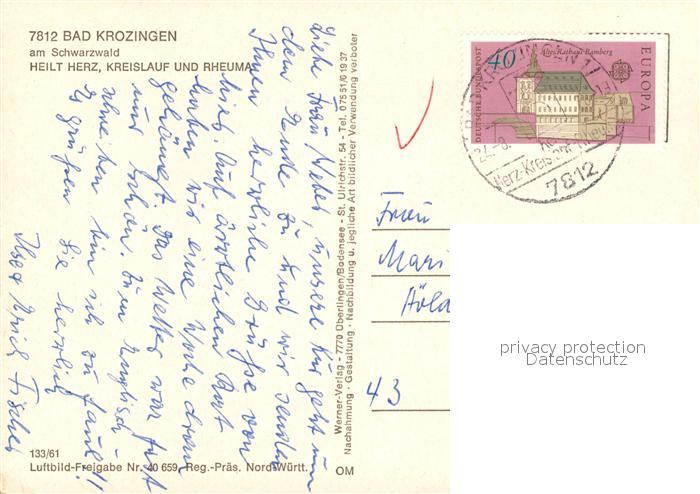 7812 BAD KROZINGEN
am Schwarzwald
HEILT HERZ, KREISLAUF UND RHEUMA
Liebe Frau Weber, unsere Kur geht nun
dem Ende zu und wir senden
Ihnen herzliche Grüße von
hier. Auf ärztlichen Rat
haben wir eine Woche dran
gehängt. Das Wetter war fast
nur schön. Zum Englisch
schreiben bin ich zu faul!!
Es grüßen Sie herzlich
Ihre Erich Fischer
133/61
Luftbild-Freigabe Nr. 40 659, Reg.-Präs. Nord-Württ.
OM
Werner-Verlag - 7770 Überlingen/Bodensee - St. Ulrichstr. 54 - Tel. 07551/61937
Nachahmung - Gestaltung - Nachbildung u. jegliche Art bildlicher Verwendung verboten
DEUTSCHE BUNDESPOST
40
Altes Rathaus Bamberg
EUROPA
7812
Frau
Mari
Höld
43
privacy protection
Datenschutz